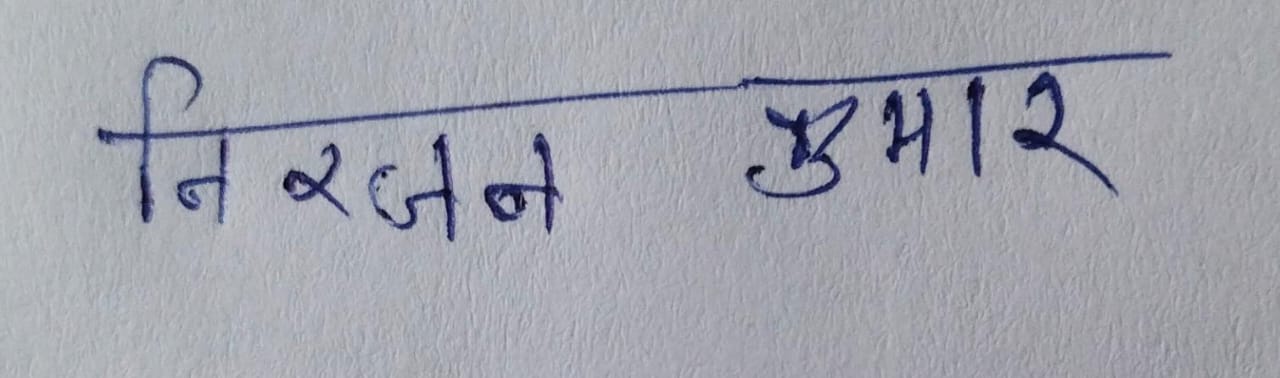 निरजन कुमार